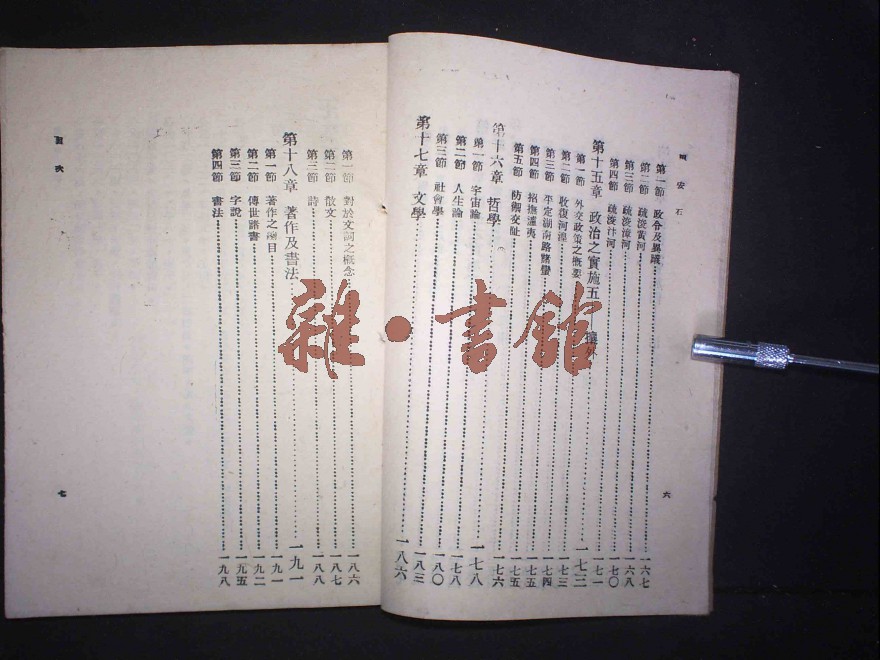 安石
第一節 政令及異議 一六七
第二節 疏浚黃河 一六八
第三節 疏浚漳河 一七〇
第四節 疏浚汴河 一七一
第十五章 政治之實施五——攘外 一七三
第一節 外交政策之概要 一七三
第二節 收復河湟 一七四
第三節 平定湖南路諸蠻 一七五
第四節 招撫瀘夷 一七五
第五節 防禦交趾 一七六
第十六章 哲學 一七八
第一節 宇宙論 一七八
第二節 人生論 一八〇
第三節 社會學 一八三
第十七章 文學 一八六
六
目次
第一節 對於文詞之概念 一八六
第二節 散文 一八七
第三節 詩 一八八
第十八章 著作及書法 一九一
第一節 著作之總目 一九一
第二節 傳世諸書 一九二
第三節 字說 一九五
第四節 書法 一九八
七
雜·書館